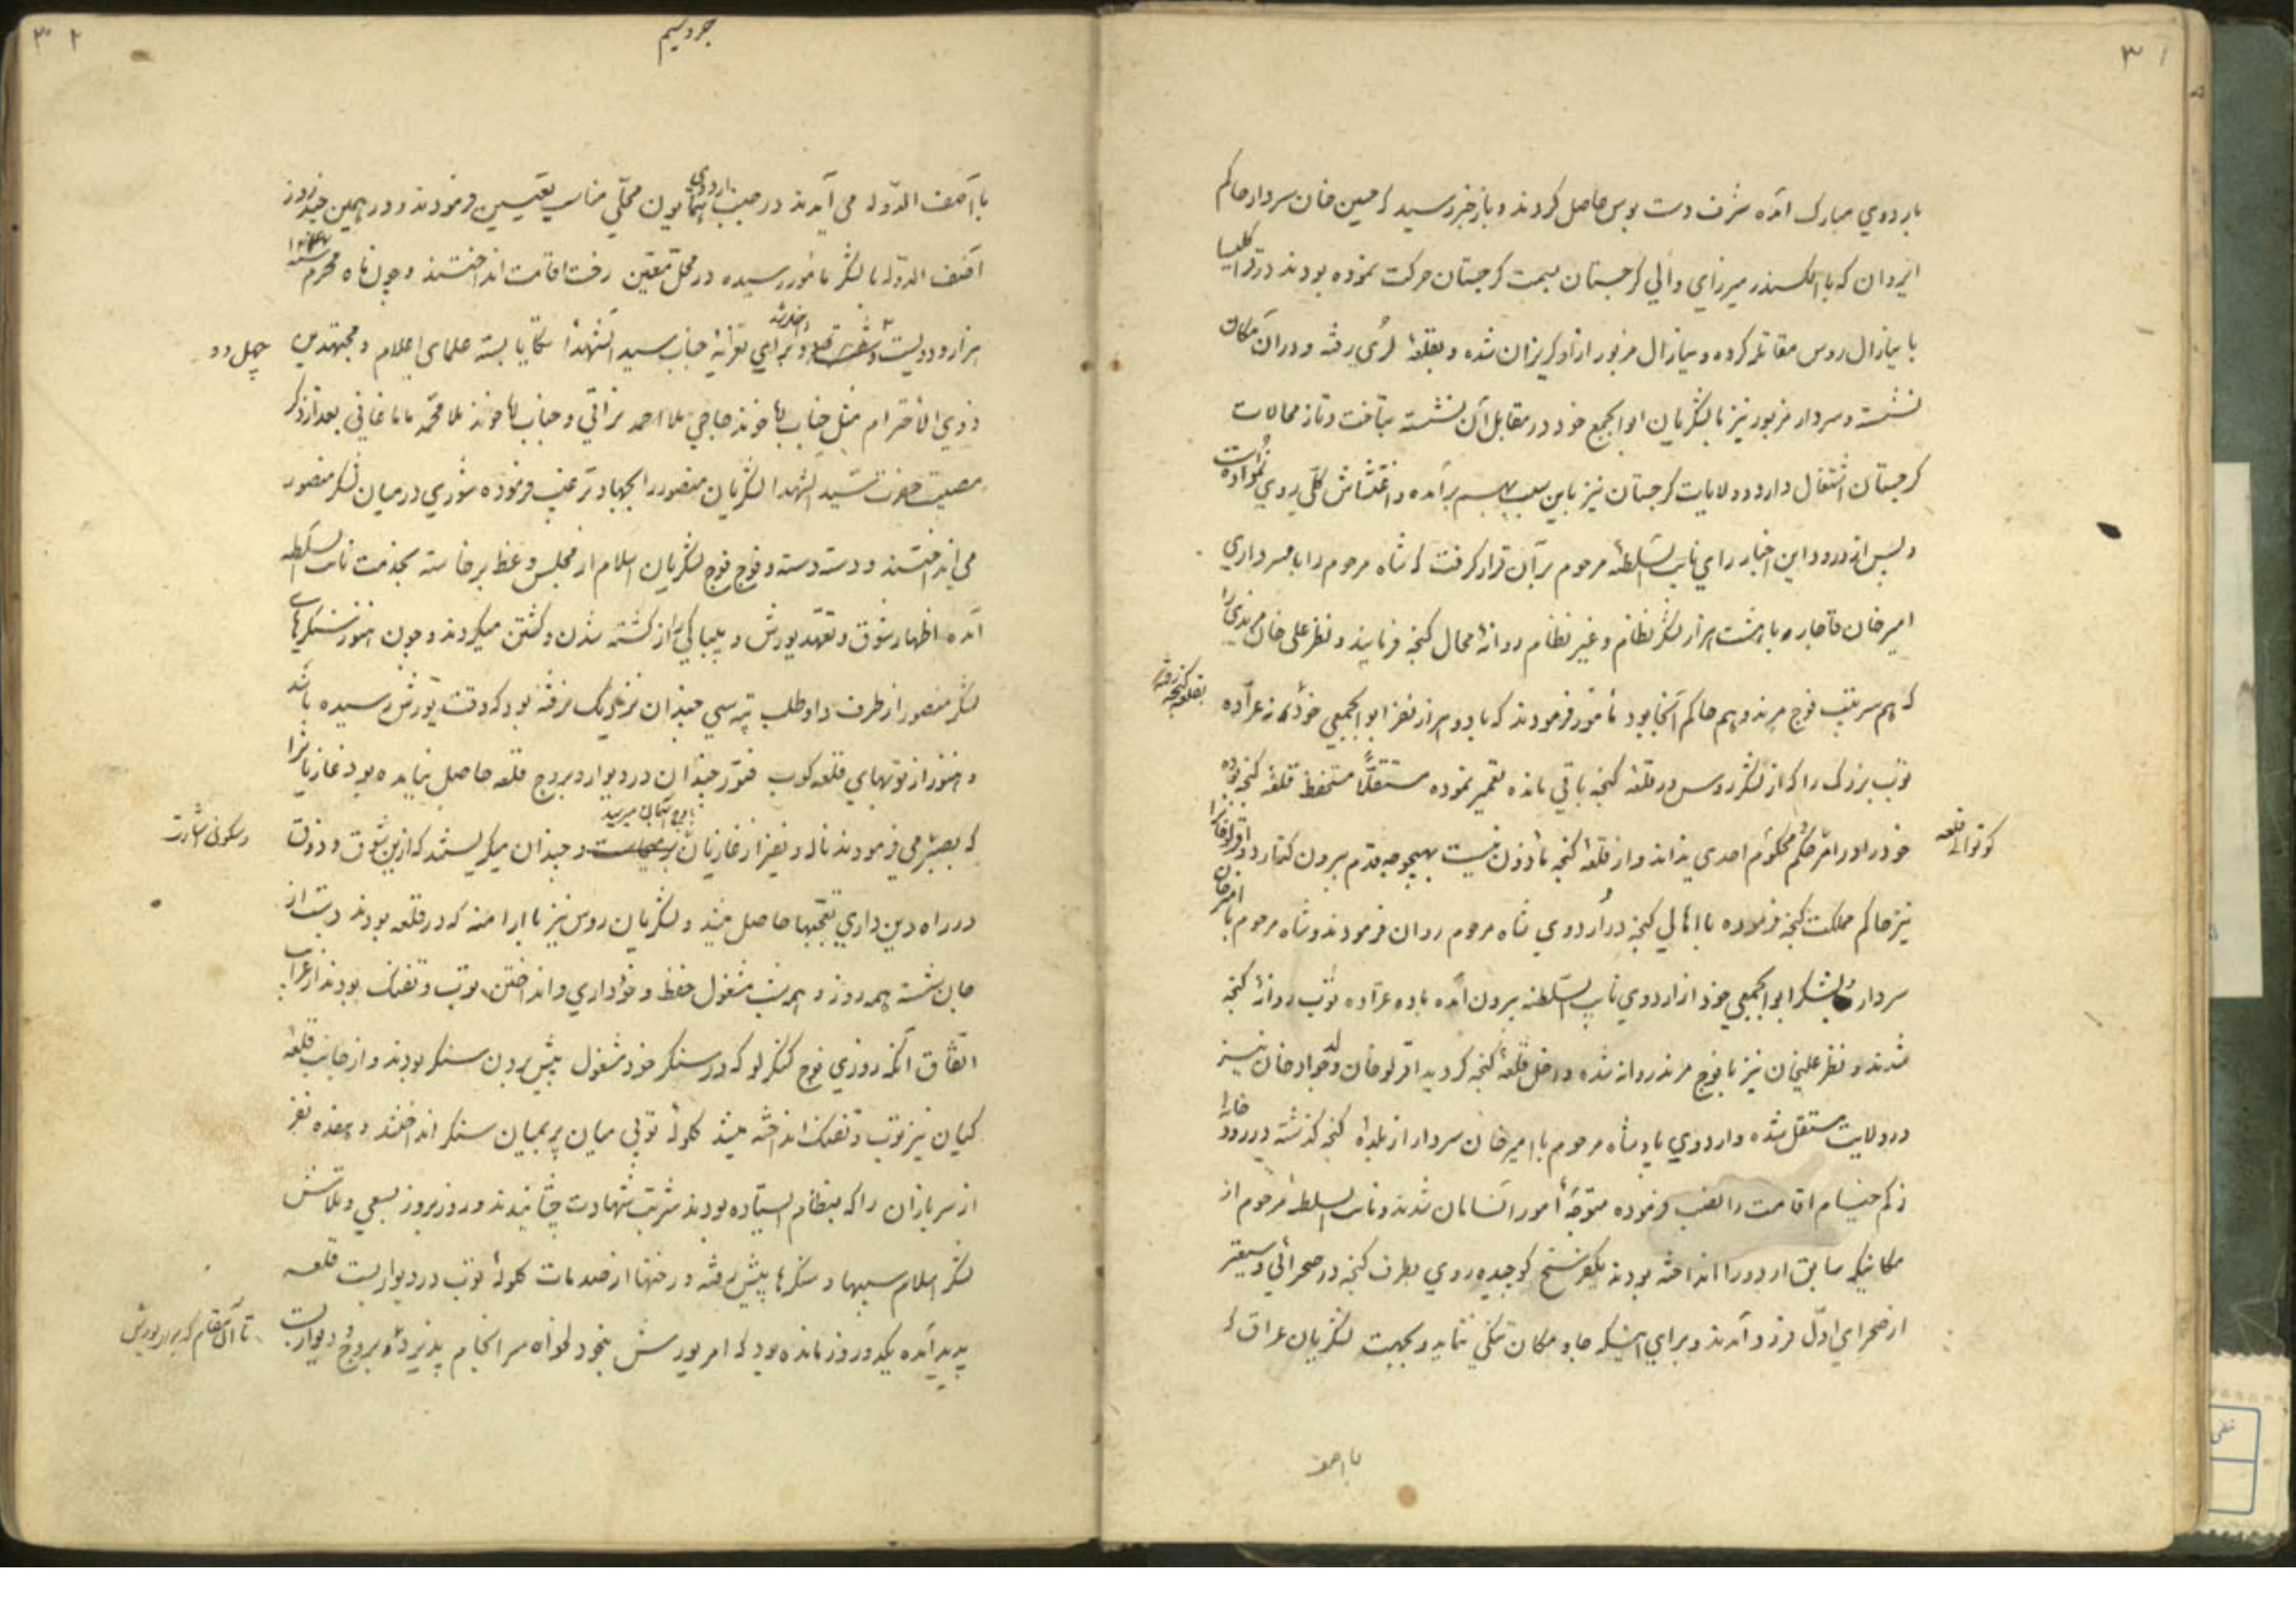 ۳۱
باردوي مبارک آمده شرف دست بوس حاصل کردند و باز خبر رسید که حسین خان سردار حاکم
ایروان که با الکسندر میرزاي والي کرجستان بسمت کرجستان حرکت نموده بودند در قرا کلیسا
با ینارال روس مقاتله کرده و ینارال مزبور از او کریزان شده و بقلعۀ لري رفته و در آن مکان
نشسته و سردار مزبور نیز با لشکریان ابوابجمع خود در مقابل آن نشسته بتاخت و تاز محالات
کرجستان اشتغال دارد و ولایات کرجستان نیز باین سبب بهم برآمده و اغتشاش کلّی روي نموده است
و پس از ورود این اخبار راي نایب السّلطنۀ مرحوم بر آن قرار کرفت که شاه مرحوم را با سرداري
امیر خان قاجار و با هشت هزار لشکر نظام و غیر نظام روانۀ محال کنجه فرمایند و نظر علی خان مرندي را
که هم سرتیپ فوج مرند و هم حاکم آنجا بود مأمور فرمودند که با دو هزار نفر ابوابجمعي خود
بقلعۀ کنجه رفته
توپ بزرک را که از لشکر روس در قلعۀ کنجه باقي مانده تعمیر نموده مستقلّاً مستحفظ قلعۀ کنجه بوده
کوتوالي قلعه
خود را در امر حکم محکوم احدي نداند و از قلعۀ کنجه مأذون نیست بهیچوجه قدم بیرون کذارد و اوقرلو خان را
نیز حاکم مملکت کنجه فرموده با اهالي کنجه در اردوي شاه مرحوم روان فرمودند و شاه مرحوم با امیر خان
سردار و لشکر ابوابجمعي خود از اردوي نایب السّلطنه بیرون آمده با ده عرّاده توپ روانۀ کنجه
شدند و نظر علیخان نیز با فوج مرند روانه شده داخل قلعۀ کنجه کردید اقرلو خان ولد جواد خان نیز
در ولایت مستقل شده و اردوي پادشاه مرحوم با امیر خان سردار از بلدۀ کنجه کذشته در رود خانۀ
زکم خیام اقامت را نصب فرموده متوجّه امور آنسامان شدند و نایب السلطنۀ مرحوم از
مکانیکه سابق اردو را انداخته بودند یکفرسخ کوچیده روي بطرف کنجه در صحرائي وسیعتر
از صحراي اوّل فرود آمدند و براي اینکه جا و مکان تنکي ننماید و بجهت لشکریان عراق که
با آصف
۳۲
جزو سیم
با آصف الدّوله مي آیند در جنب اردوي همایون محلّي مناسب تعیین فرمودند و در همین چند روز
آصف الدّوله با لشکر مأمور رسیده در محلّ معیّن رفت اقامت انداختند و چون ماه محرم سنۀ
هزار و دویست و چهل دو داخل شد و براي تعزیۀ جناب سید الشهدا تکایا بسته علماي اعلام و مجتهدین
ذوي الاحترام مثل جناب آخوند حاجي ملا احمد نراقي و جناب آخوند ملا محمّد مامقاني بعد از ذکر
مصیبت حضرت سیّد الشهدا لشکریان منصور را بجهاد ترغیب فرموده شوري در میان لشکر منصور
مي انداختند و دسته دسته و فوج فوج لشکریان اسلام از مجلس وعظ برخاسته بخدمت نایب السّلطنه
آمده اظهار شوق و تعهّد یورش و بیباکي از کشته شدن و کشتن میکردند و چون هنوز سنکرهاي
لشکر منصور از طرف داوطلب تپه سي چندان نزدیک نرفته بود که وقت یورش رسیده باشد
و هنوز از توپهاي قلعه کوب فتور چندان در دیوار و بروج قلعه حاصل نیامده بود غازیان را
که بصبر مي فرمودند ناله و نفیر از غازیان باوج آسمان میرسید و چندان میکریستند که ازین شوق و ذوق
در راه دین داري تعجّبها حاصل میشد و لشکریان روس نیز با ارامنه که در قلعه بودند دست از
جان شسته همه روز و همه شب مشغول حفظ و خودداري و انداختن توپ و تفنک بودند از غرایب
اتّفاق آنکه روزي فوج کنکرلو که در سنکر خود مشغول پیش بردن سنکر بودند و از جانب قلعه
کیان نیز توپ و تفنک انداخته میشد کلولۀ توپي میان پر بمیان سنکر انداختند و هفده نفر
از سربازان را که بنظام ایستاده بودند شربت شهادت چشانیدند و روز بروز بسعي و تلاش
لشکر اسلام سیبها و سنکرها پیش رفته و رخنها از صدمات کلولۀ توپ در دیوار بست قلعه
پدید آمده یکدو روز مانده بود که امر یورش بخوددلخواه سر انجام پذیرد و بروج و دیوار بست